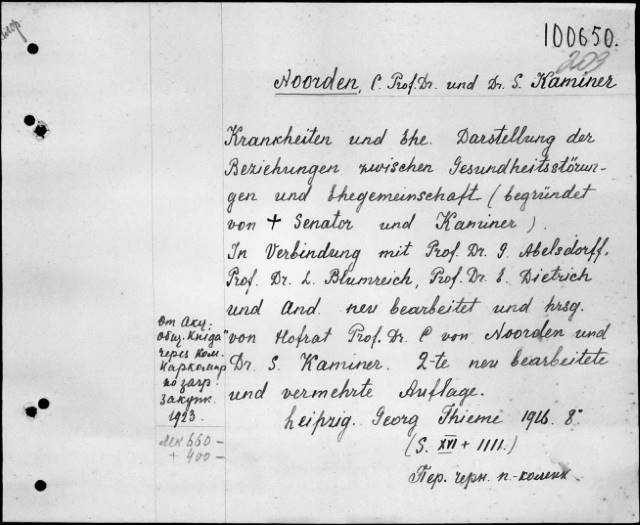 100650.
209
Noorden, C. Prof. Dr. und Dr. S. Kaminer
Krankheiten und Ehe. Darstellung der
Beziehungen zwischen Gesundheitsstörun-
gen und Ehegemeinschaft (begründet
von + Senator und Kaminer).
In Verbindung mit Prof. Dr. G. Abelsdorff,
Prof. Dr. L. Blumreich, Prof. Dr. E. Dietrich
und And. neu bearbeitet und hrsg.
von Hofrat Prof. Dr. C von Noorden und
Dr. S. Kaminer. 2-te neu bearbeitete
und vermehrte Auflage.
Leipzig. Georg Thieme 1916. 8°.
(S. XVI + 1111.)
Пер. черн. п.-коленк.
От Акц.
общ. "Книга"
через Ком.
Наркомпр
по загр.
закупк.
1923.
Мк 660 -
+ 400 -